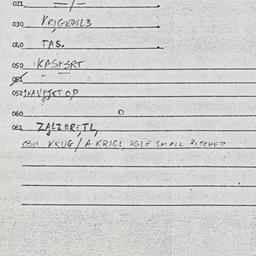 021
030 KRIGEDIL3
060 TAS.
050 :KASKSRT
051
052 :NAVEJKTOP
060 O
061 ZALZBRETL,
KRUG / A KRIGL, OGLE SMALL PITCHER